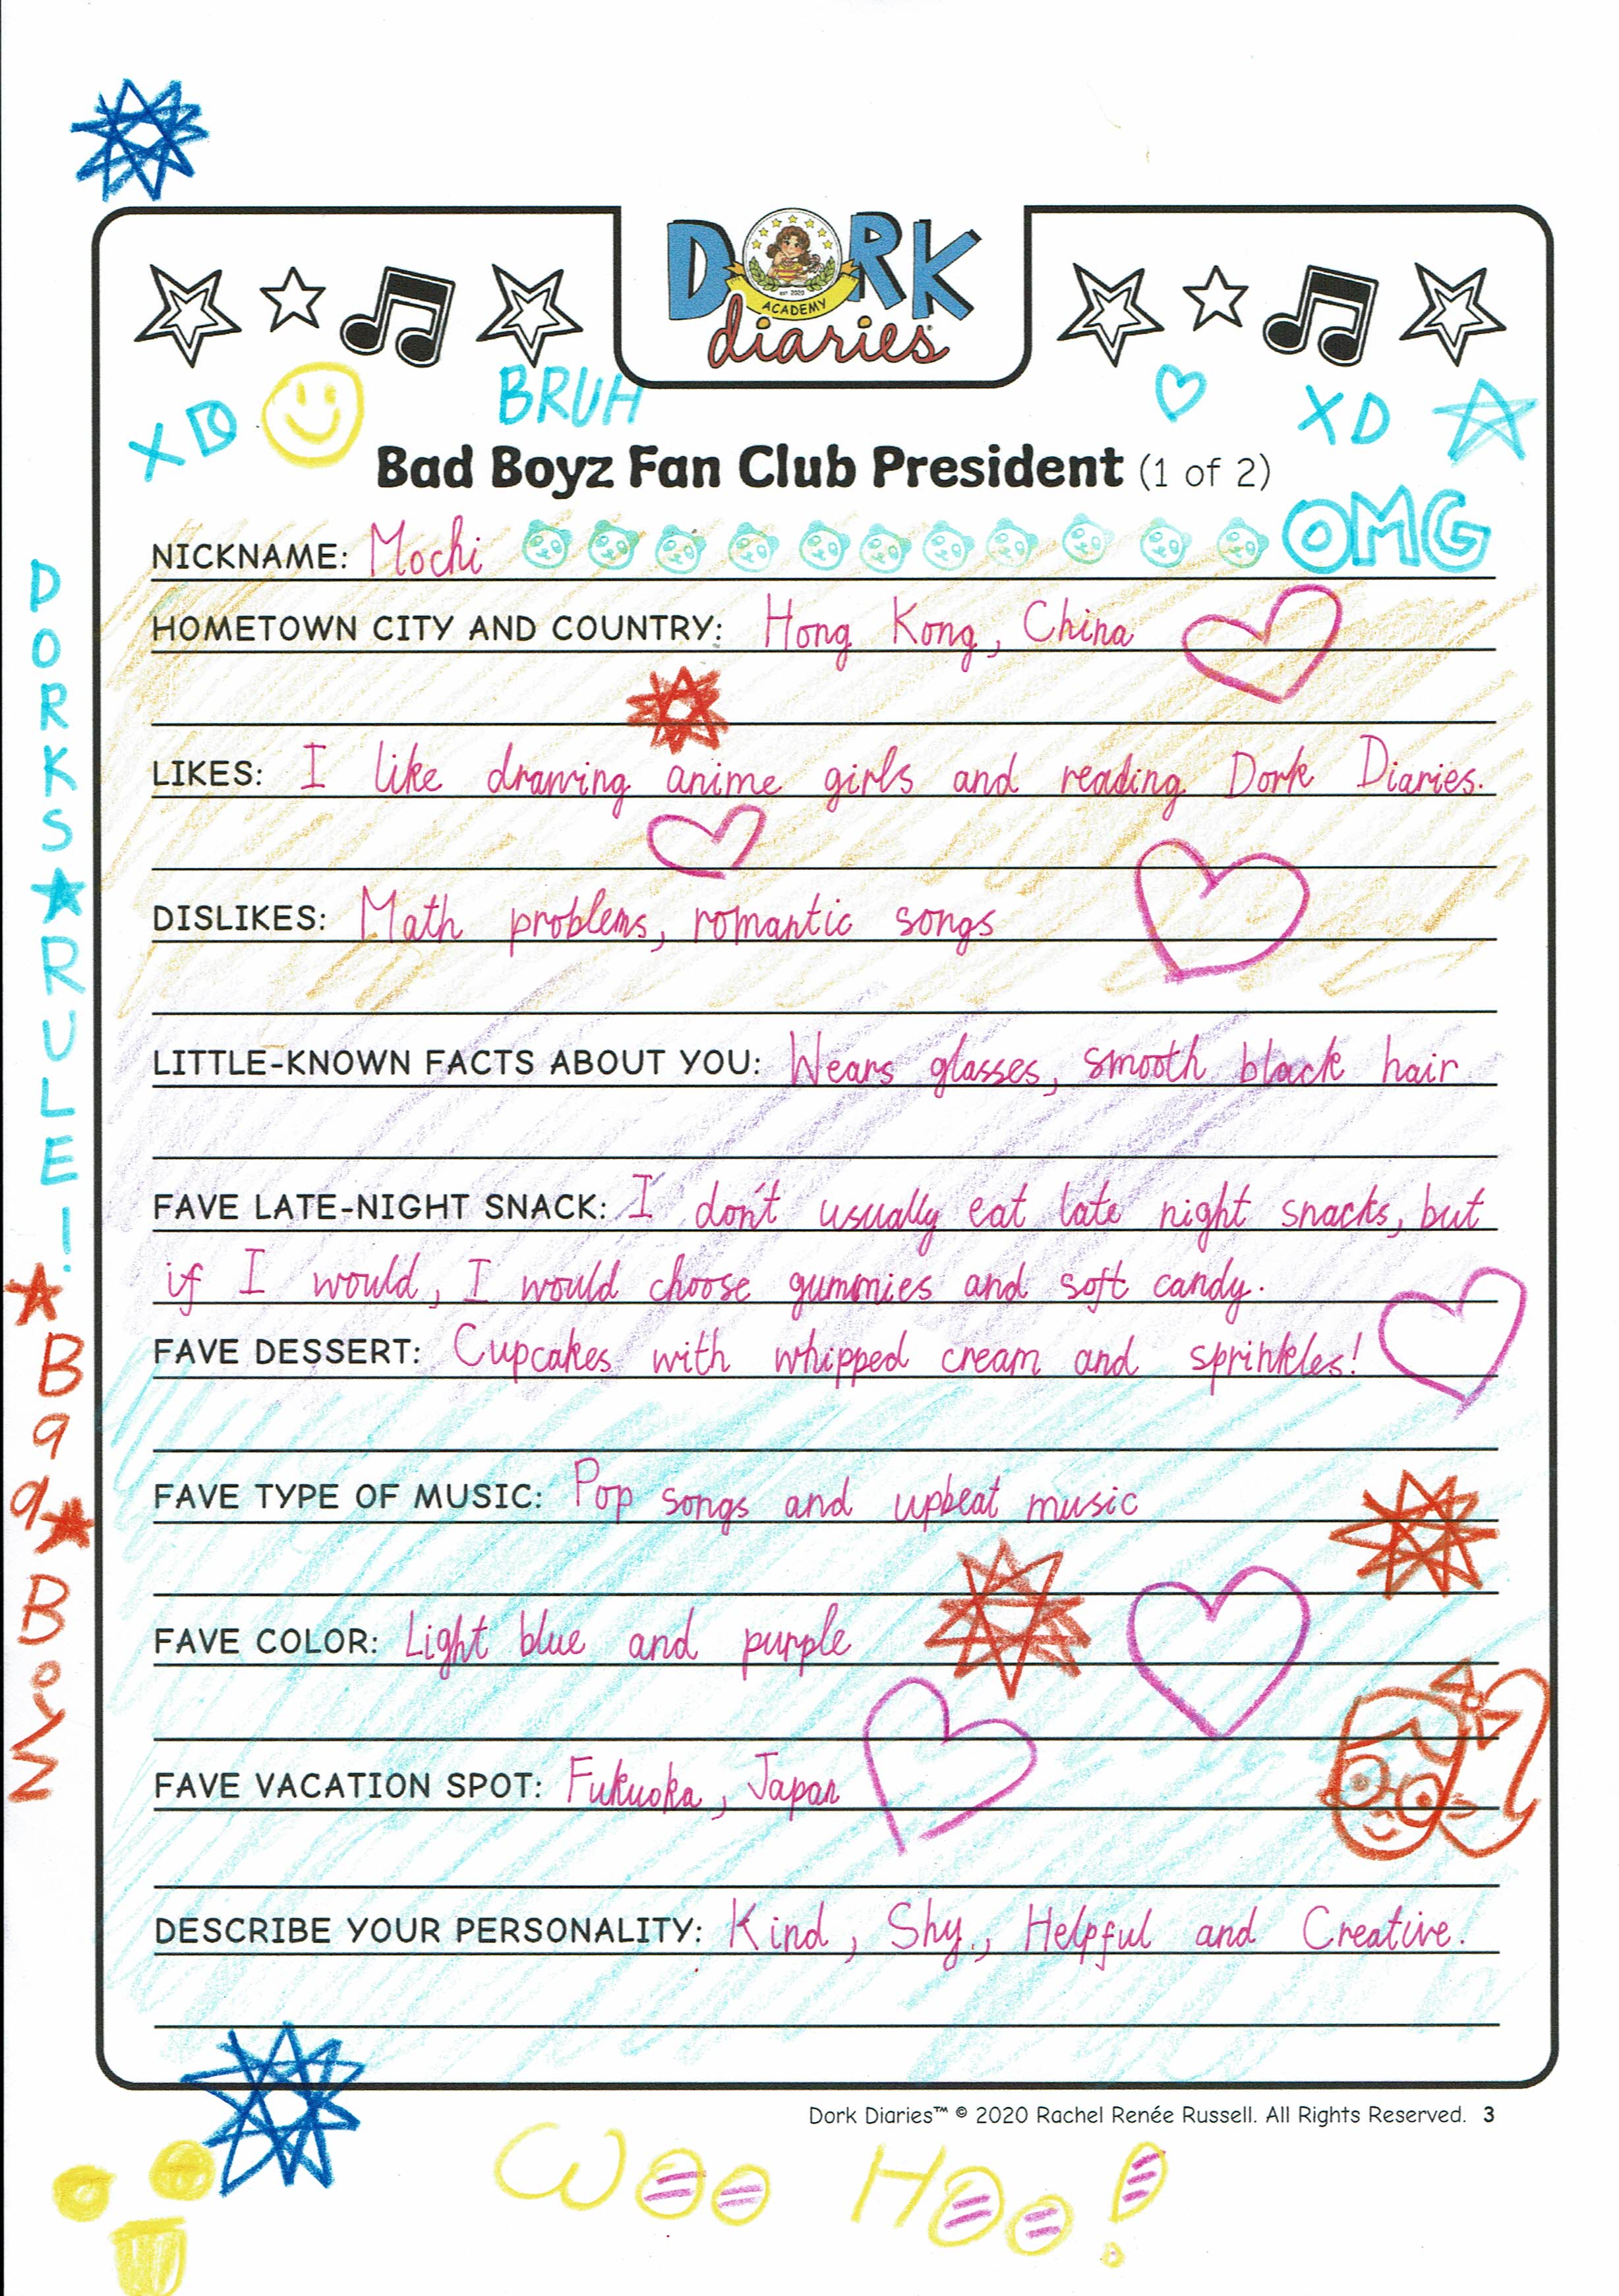 DORK
EST 2020
ACADEMY
diaries
XD
BRUH
XD
Bad Boyz Fan Club President (1 of 2)
OMG
NICKNAME: Mochi
HOMETOWN CITY AND COUNTRY: Hong Kong, China
LIKES: I like drawing anime girls and reading Dork Diaries.
DISLIKES: Math problems, romantic songs
LITTLE-KNOWN FACTS ABOUT YOU: Wears glasses, smooth black hair
FAVE LATE-NIGHT SNACK: I don't usually eat late night snacks, but
if I would, I would choose gummies and soft candy.
FAVE DESSERT: Cupcakes with whipped cream and sprinkles!
FAVE TYPE OF MUSIC: Pop songs and upbeat music
FAVE COLOR: Light blue and purple
FAVE VACATION SPOT: Fukuoka, Japan
DESCRIBE YOUR PERSONALITY: Kind, Shy, Helpful and Creative.
DORKS RULE!
Dork Diaries™ © 2020 Rachel Renée Russell. All Rights Reserved. 3
Woo Hoo!